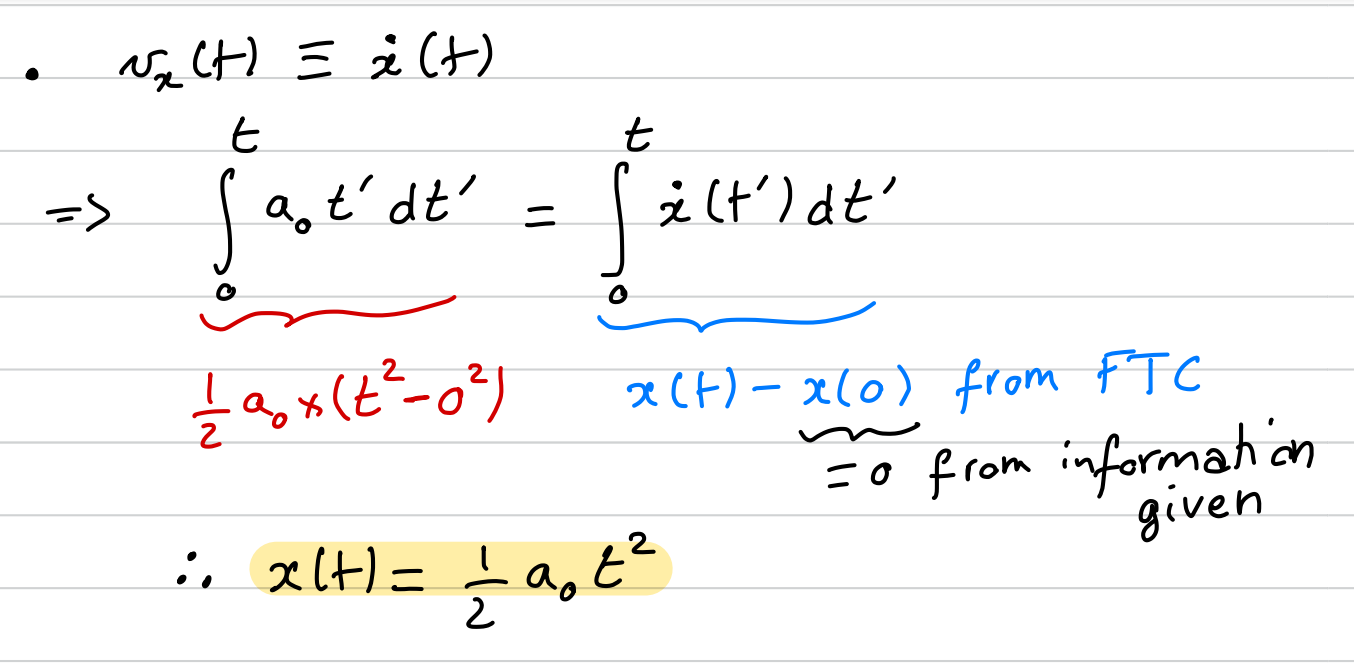 • v_x(t) ≡ ẋ(t)
=> ∫₀ᵗ a₀ t′ dt′ = ∫₀ᵗ ẋ(t′) dt′
½ a₀ × (t² − 0²) x(t) − x(0) from FTC
= 0 from information
given
∴ x(t) = ½ a₀ t²